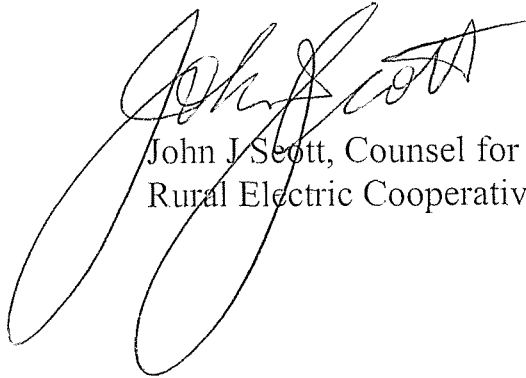 John J Scott
John J Scott, Counsel for
Rural Electric Cooperativ